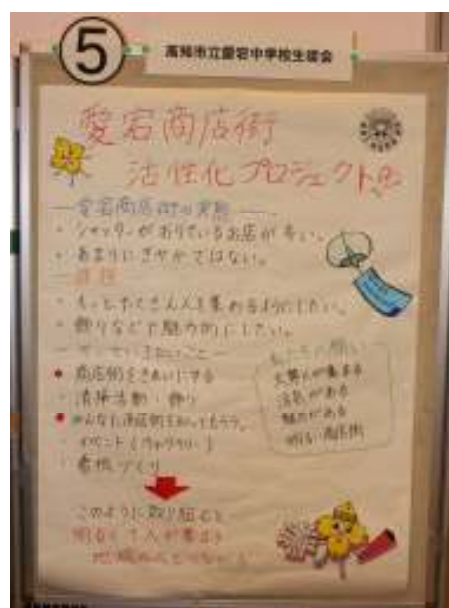 5
高知市立愛宕中学校生徒会
愛宕商店街
活性化プロジェクト
愛宕商店街の実態
・シャッターがおりているお店が多い。
・あまりにぎやかではない。
課題
・もっとたくさん人を集めるようにしたい。
・飾りなどで魅力的にしたい。
やっていきたいこと
● 商店街をきれいにする
・清掃活動・飾り
● みんなに商店街を知ってもらう。
・イベント
・看板づくり
私たちの願い
大勢人が集まる
活気がある
魅力がある
明るい商店街
このように取り組むと
明るく、人が集まる
地域